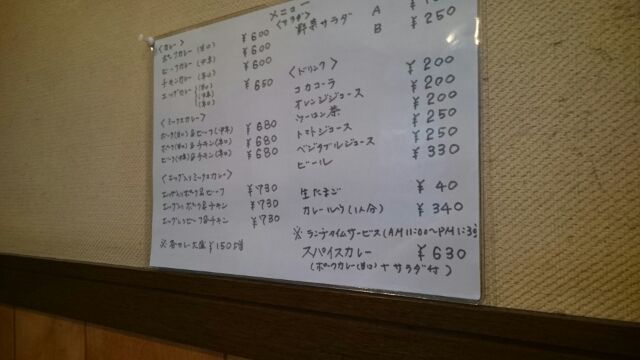 メニュー
〈カレー〉
ポークカレー(甘口) ¥600
ビーフカレー(中辛) ¥600
チキンカレー(辛口) ¥600
エッグカレー (甘口) ¥650
(中辛)
(辛口)
〈ミックスカレー〉
ポーク(甘口)&ビーフ(中辛) ¥680
ポーク(甘口)&チキン(辛口) ¥680
ビーフ(中辛)&チキン(辛口) ¥680
〈エッグ入りミックスカレー〉
エッグ入りポーク&ビーフ ¥730
エッグ入りポーク&チキン ¥730
エッグ入りビーフ&チキン ¥730
※各カレー大盛 ¥150増
〈サラダ〉
野菜サラダ A
B ¥250
〈ドリンク〉
コカコーラ ¥200
オレンジジュース ¥200
ウーロン茶 ¥200
トマトジュース ¥250
ベジタブルジュース ¥250
ビール ¥330
生たまご ¥40
カレールウ(1人分) ¥340
※ランチタイムサービス(AM11:00~PM1:30
スパイスカレー ¥630
(ポークカレー(甘口)+サラダ付)